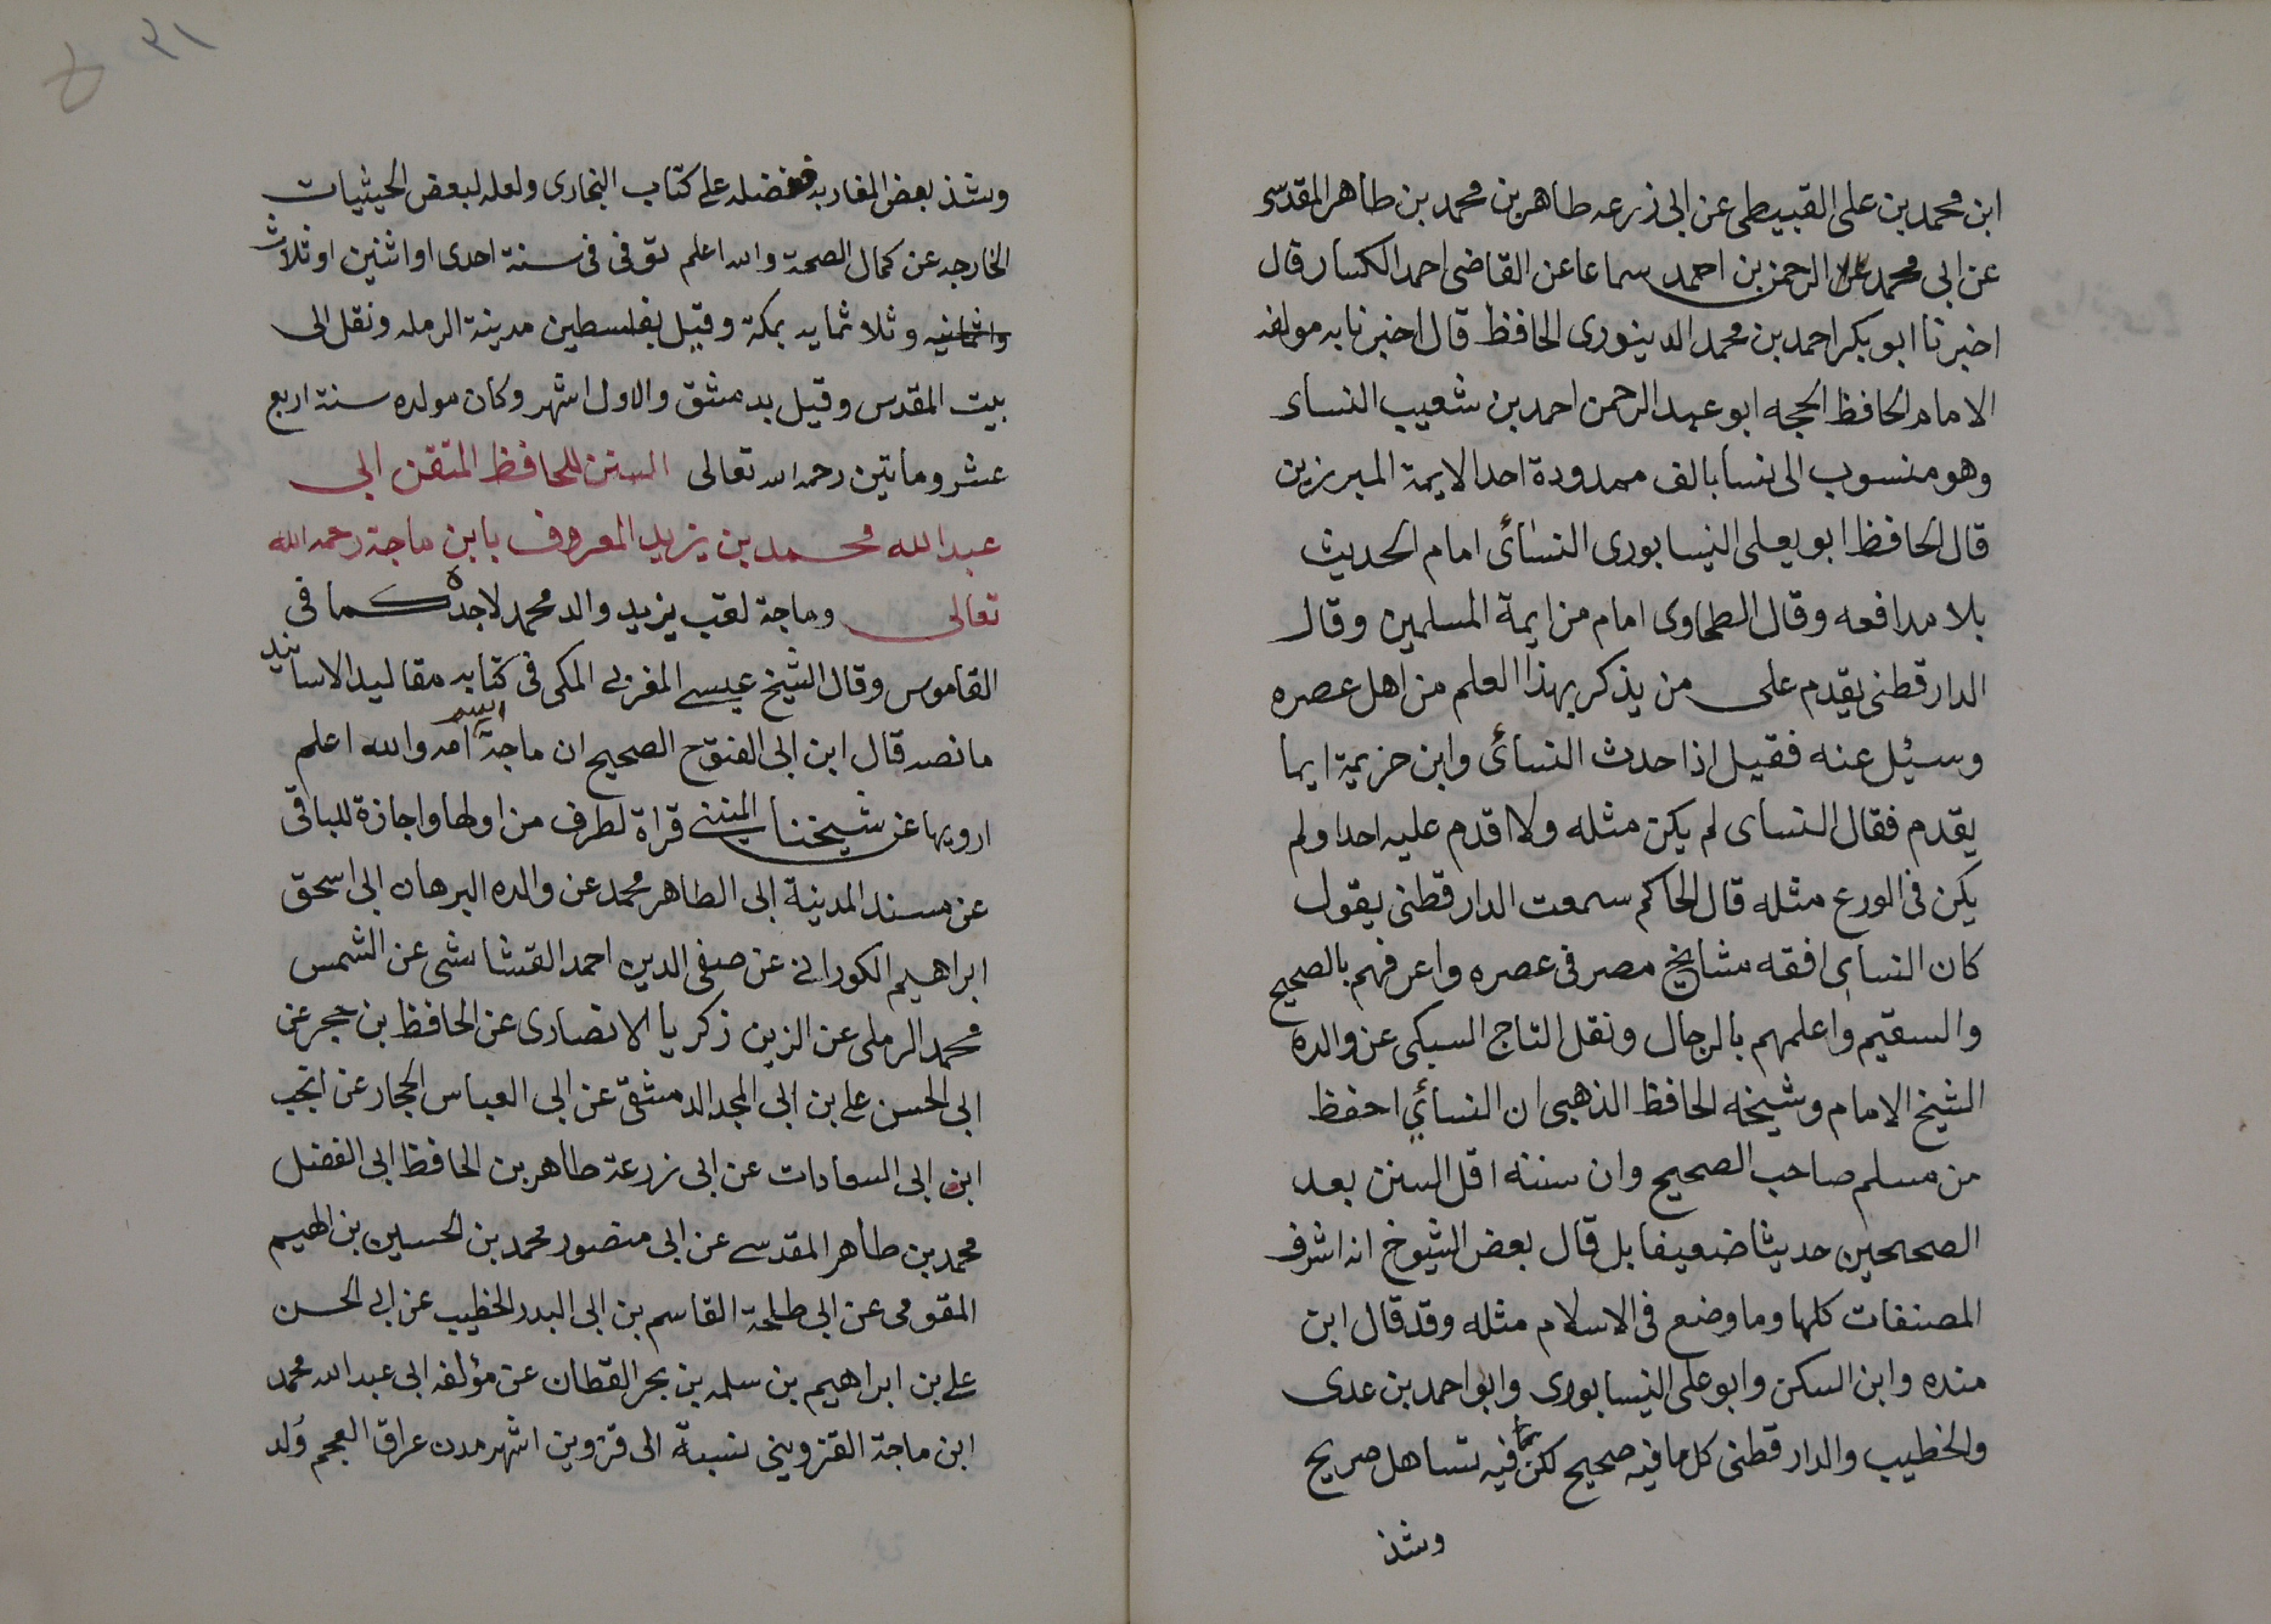 ابن محمد بن على القبيطى عن ابى زرعه طاهر بن محمد بن طاهر المقدسى
عن ابى محمد عبد الرحمن بن احمد سماعا عن القاضى احمد الكسار قال
اخبرنا ابو بكر احمد بن محمد الدينورى الحافظ قال اخبرنا به مولفه
الامام الحافظ الحجه ابو عبد الرحمن احمد بن شعيب النساء
وهو منسوب الى نسا بالف ممدودة احد الايمة المبرزين
قال الحافظ ابو يعلى النيسابورى النسائى امام الحديث
بلا مدافعه وقال الطحاوى امام من ايمة المسلمين وقال
الدارقطنى يقدم على من يذكر بهذا العلم من اهل عصره
وسئل عنه فقيل اذا حدث النسائى وابن خزيمة ايما
يقدم فقال النساى لم يكن مثله ولا اقدم عليه احدا ولم
يكن فى الورع مثله قال الحاكم سمعت الدارقطنى يقول
كان النساى افقه مشايخ مصر فى عصره واعرفهم بالصحيح
والسقيم واعلمهم بالرجال ونقل التاج السبكى عن والده
الشيخ الامام وشيخه الحافظ الذهبى ان النسائي احفظ
من مسلم صاحب الصحيح وان سننه اقل السنن بعد
الصححين حديثا ضعيفا بل قال بعض الشيوخ انه اشرف
المصنفات كلها وما وضع فى الاسلام مثله وقد قال ابن
منده وابن السكن وابو على النيسابورى وابو احمد بن عدى
والخطيب والدارقطنى كل ما فيه صحيح لكن فيه تساهل صريح
وشذ
٣١
وشذ بعض المغاربه ففضله على كتاب البخارى ولعله لبعض الحيثيات
الخارجه عن كمال الصحة والله اعلم توفى فى سنة احدى او اثنين او ثلاث
وثمانيه وثلاثمايه بمكة وقيل بفلسطين مدينة الرمله ونقل الى
بيت المقدس وقيل بدمشق والاول اشهر وكان مولده سنة اربع
عشر وماتين رحمه الله تعالى السنن للحافظ المتقن ابى
عبد الله محمد بن يزيد المعروف بابن ماجة رحمه الله
تعالى وماجة لقب يزيد والد محمد لا جده كما فى
القاموس وقال الشيخ عيسى المغربى المكى فى كتابه مقاليد الاسانيد
ما نصه قال ابن ابى الفتوح الصحيح ان ماجة اسم امه والله اعلم
ارويها عن شيخنا المنينى قراة لطرف من اولها واجازة للباقى
عن مسند المدينة ابى الطاهر محمد عن والده البرهان ابى اسحق
ابراهيم الكورانى عن صفى الدين احمد القشاشى عن الشمس
محمد الرملى عن الزين زكريا الانصارى عن الحافظ بن حجر عن
ابى الحسن على بن ابى المجد الدمشقى عن ابى العباس الحجار عن انجب
ابن ابى السعادات عن ابى زرعة طاهر بن الحافظ ابى الفضل
محمد بن طاهر المقدسى عن ابى منصور محمد بن الحسين بن الهيم
المقومى عن ابى طلحة القاسم بن ابى البدر الخطيب عن ابى الحسن
على بن ابراهيم بن سلمه بن بحر القطان عن مؤلفه ابى عبد الله محمد
ابن ماجة القزوينى نسبة الى قزوين اشهر مدن عراق العجم ولد